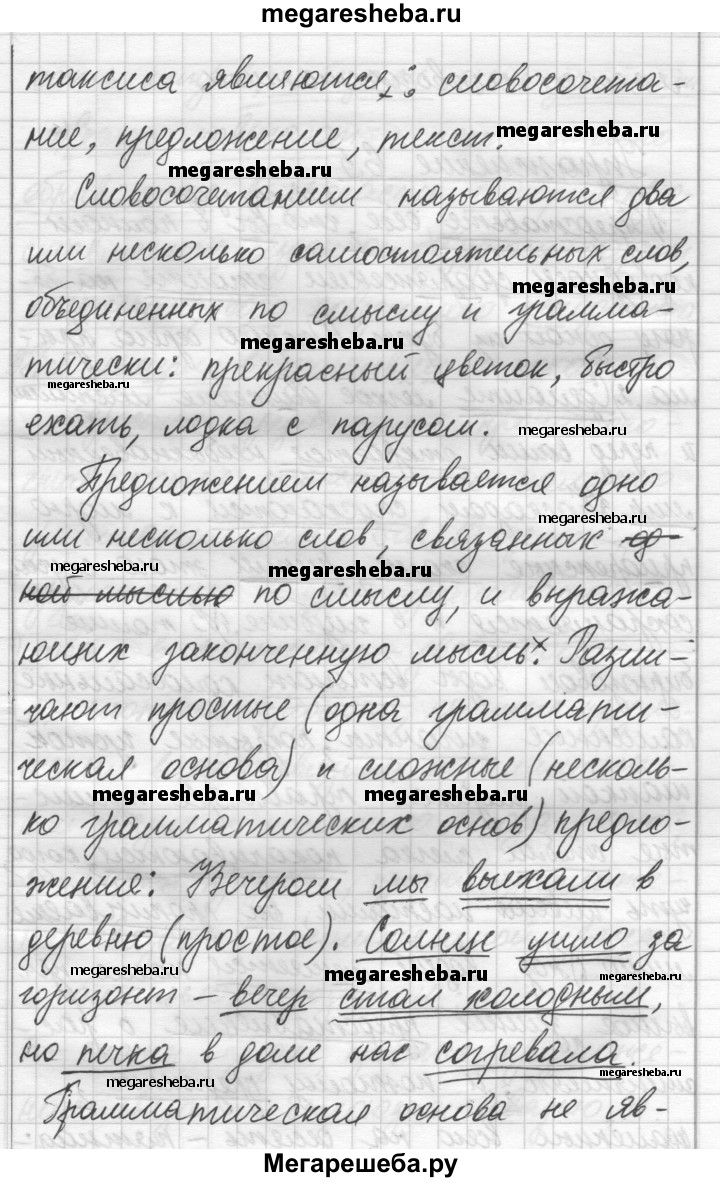 megaresheba.ru
таксиса являются: словосочета-
ние, предложение, текст.
megaresheba.ru
megaresheba.ru
Словосочетанием называются два
или несколько самостоятельных слов,
megaresheba.ru
объединенных по смыслу и грамма-
megaresheba.ru
тически: прекрасный цветок, быстро
megaresheba.ru
megaresheba.ru
ехать, лодка с парусом.
megaresheba.ru
Предложением называется одно
megaresheba.ru
или несколько слов, связанных од-
megaresheba.ru
megaresheba.ru
ной мыслью по смыслу, и выража-
ющих законченную мысль. Разли-
чают простые (одна граммати-
ческая основа) и сложные (несколь-
megaresheba.ru
megaresheba.ru
ко грамматических основ) предло-
жения: Вечером мы выехали в
деревню (простое). Солнце ушло за
megaresheba.ru
megaresheba.ru
megaresheba.ru
горизонт – вечер стал холодным,
но печка в доме нас согревала.
megaresheba.ru
megaresheba.ru
Грамматическая основа не яв-
Мегарешеба.ру